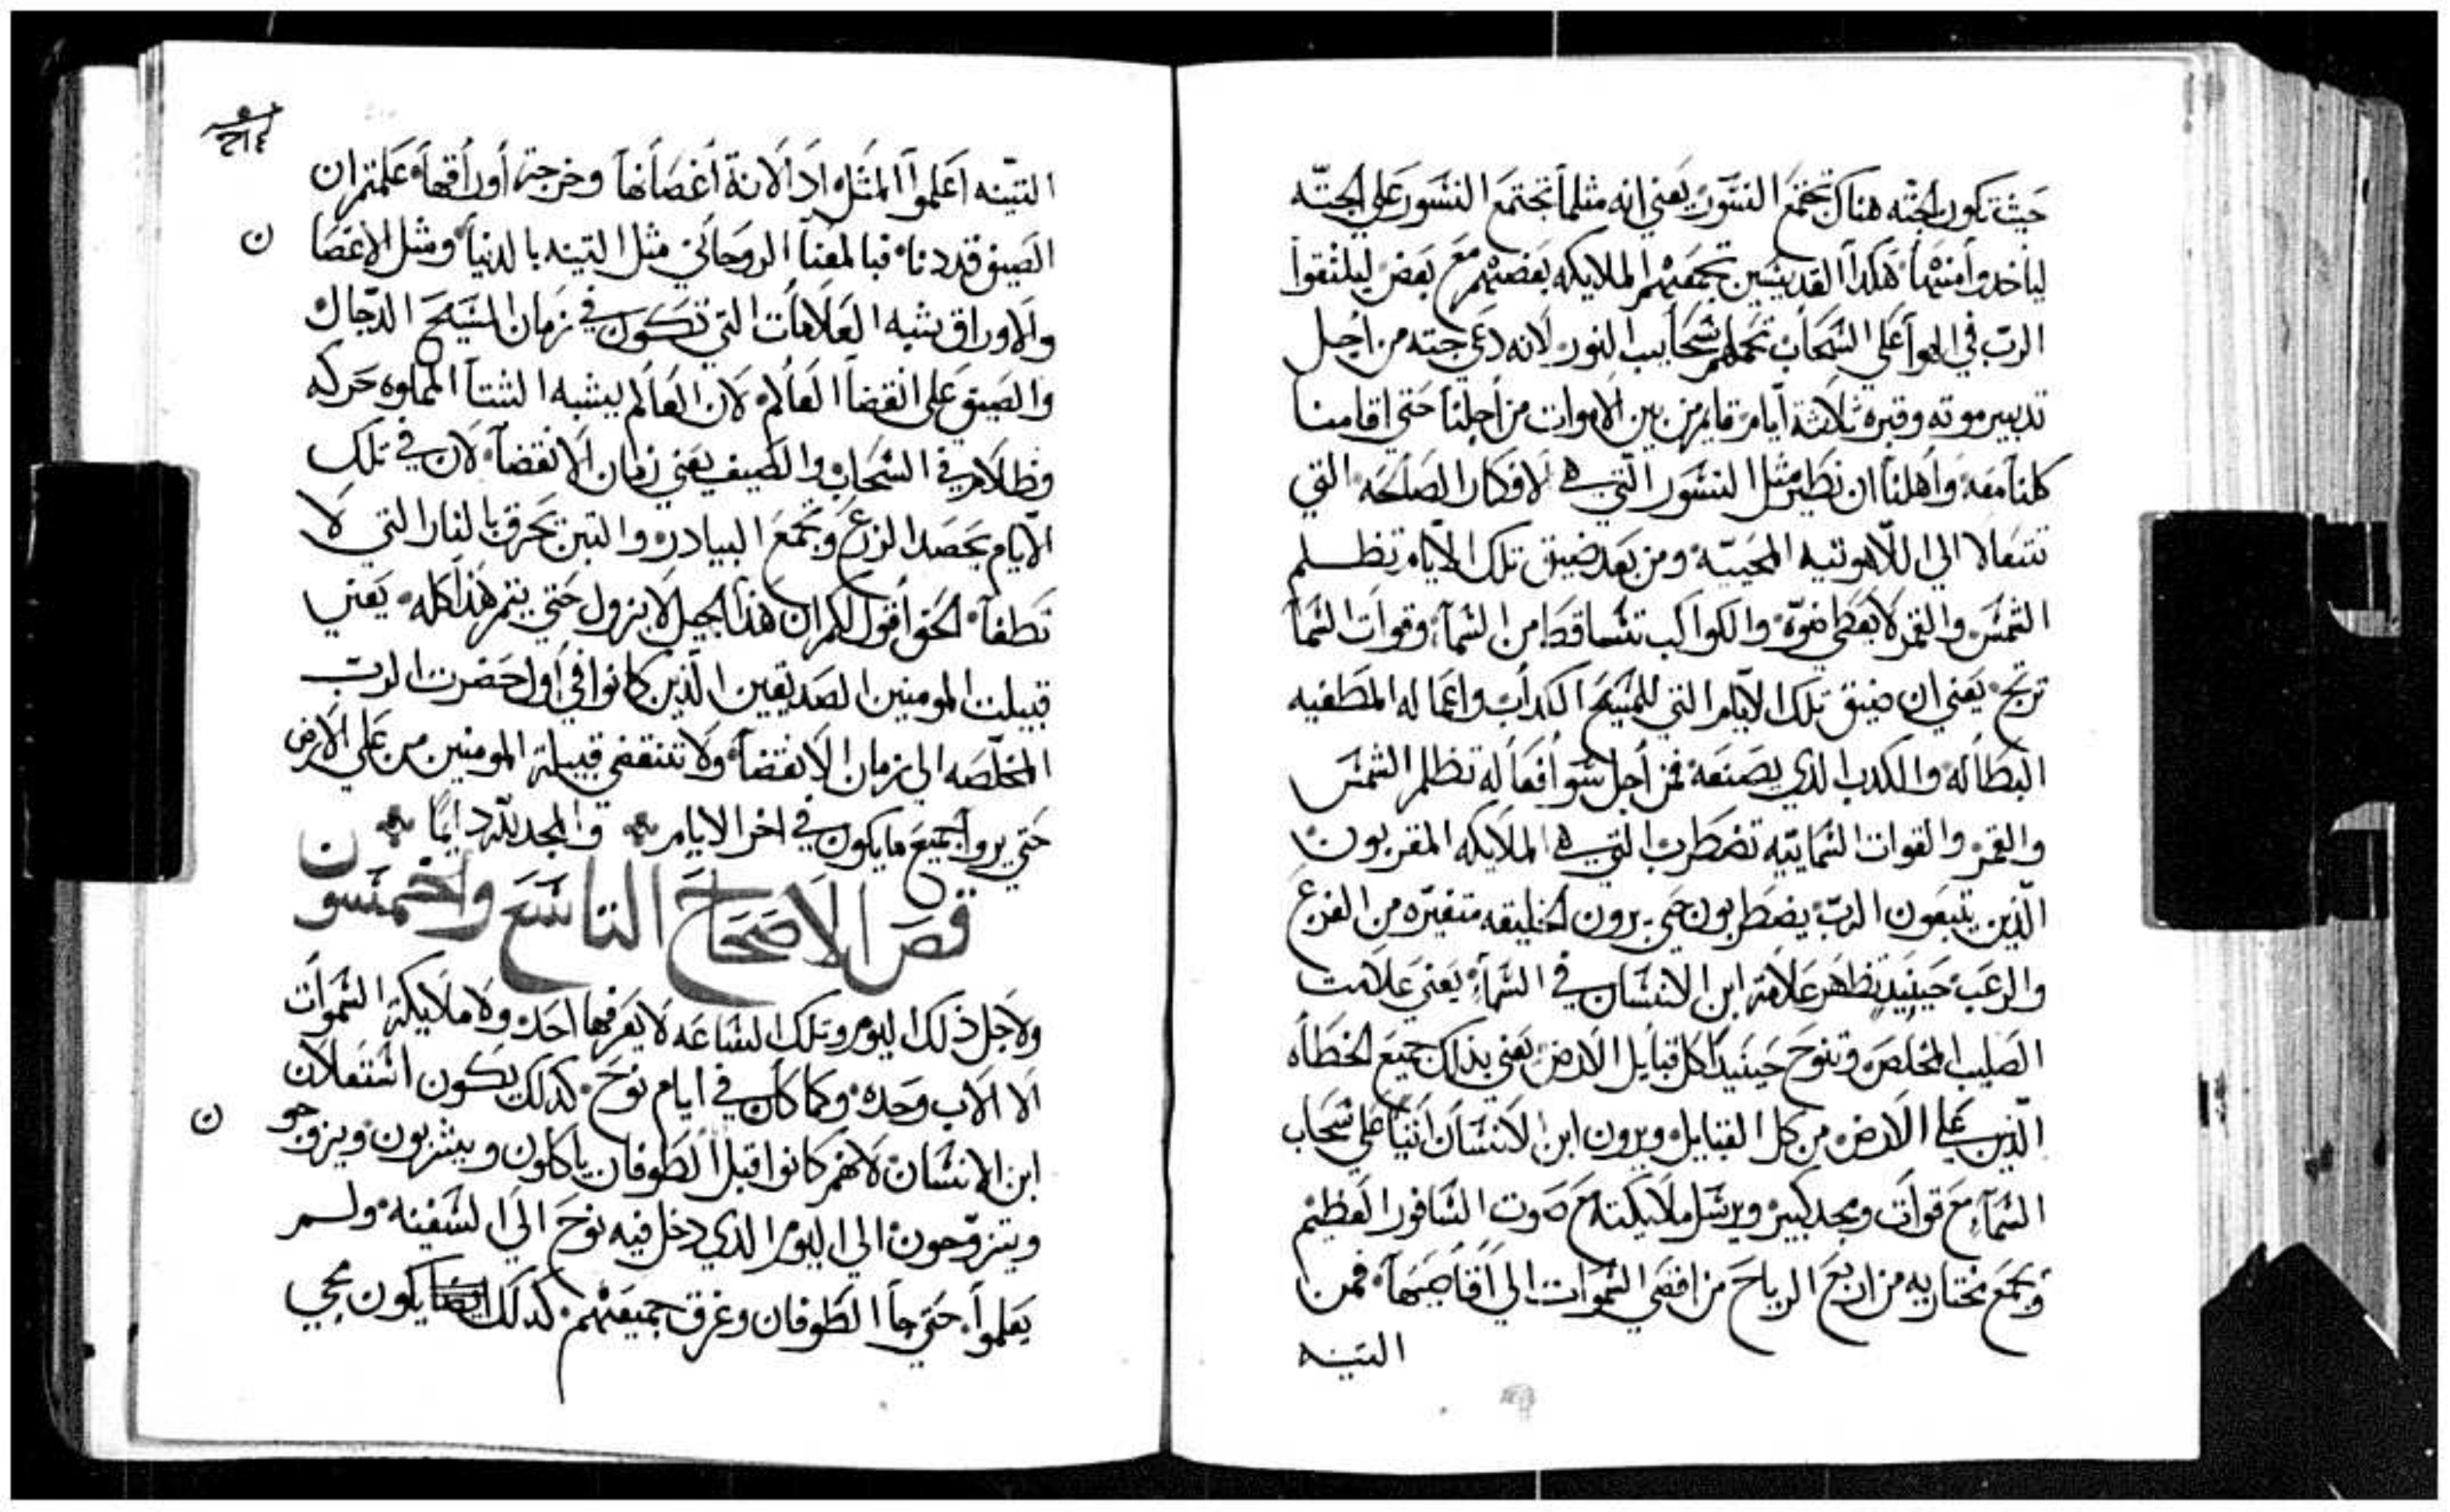 حيث تكون الجثه هناك تجتمع النسور يعني انه مثلما تجتمع النسور علي الجثه
لياخدوا منها هكدا القديسين تجمعهم الملايكه بعضهم مع بعض ليلتقوا
الرب في الهوا علي السحاب تحملهم سحاييب النور لانه دعي جثته من اجل
تدبير موته وقبره ثلاثة أيام قايم من بين الاموات من أجلنا حتي اقامنا
كلنا معه وأهلنا ان نطير مثل النسور التي هي لافكار الصالحه التي
تتعالا الي اللاهوتيه المحييه ومن بعد ضيق تلك الايام تظلم
الشمس والقمر لا يعطي ضوّه والكواكب تتساقط من السمآ وقوات السما
ترتج يعني ان ضيق تلك الايام التي للمسيح الكداب واعماله المطغيه
البطاله والكدب الدي يصنعه فمن أجل سو أفعاله تظلم الشمس
والقمر والقوات السماييه تضطرب التي هي الملايكه المقربون
الذين يتبعون الرب يضطربون حتي يرون الخليقه متغيره من الفزع
والرعب حينيد تظهر علامة ابن الانسان في السمآ يعني علامت
الصليب المخلص وتنوح حينيدا كل قبايل الارض يعني بذلك جميع الخطاه
الذين علي الارض من كل القبايل ويرون ابن الانسان اتيا علي سحاب
السمآ مع قوات ومجد كبير ويرسل ملايكته مع صوت السافور العظيم
ويجمع مختاريه من اربع الرياح من اقصي السموات الي أقاصيها فمن
التينه
٢١٤
التينه اعلموا المثل ادا لانة أغصانها وخرجة أوراقها علمتم ان
الصيف قد دنا فبالمعنا الروحاني مثل التينه بالدنيا ومثل الاغصا
ن
والاوراق يشبه العلامات التي تكون في زمان المسيح الدجال
والصيف علي انقضا العالم لان العالم يشبه الشتا المملوه حركه
وظلام في السحاب والصيف يعني زمان الانقضآ لان في تلك
الايام يحصد الزرع ويجمع البيادر والتبن يحرق بالنار التي لا
تطفآ الحق أقول لكم ان هذا الجيل لا يزول حتي يتم هذا كله يعني
قبيلت المومنين الصديقين الذين كانوا في أول حضرت الرب
المخلصه الي زمان الانقضآ ولا تنقضي قبيلة المومنين من علي الارض
حتي يروا جميع ما يكون في اخر الايام والمجد لله دايما
فصَ الاصحاح التاسع والخمسون
ولاجل ذلك اليوم وتلك الساعه لا يعرفها احد ولا ملايكة السموات
الا الاب وحده وكما كان في ايام نوح كدلك يكون استعلان
ابن الانسان لانهم كانوا قبل الطوفان ياكلون ويشربون ويزوجو
ن
ويتزوجون الي اليوم الدي دخل فيه نوح الي السفينه ولم
يعلموا حتي جا الطوفان وغرق جميعهم كدلك يكون مجي